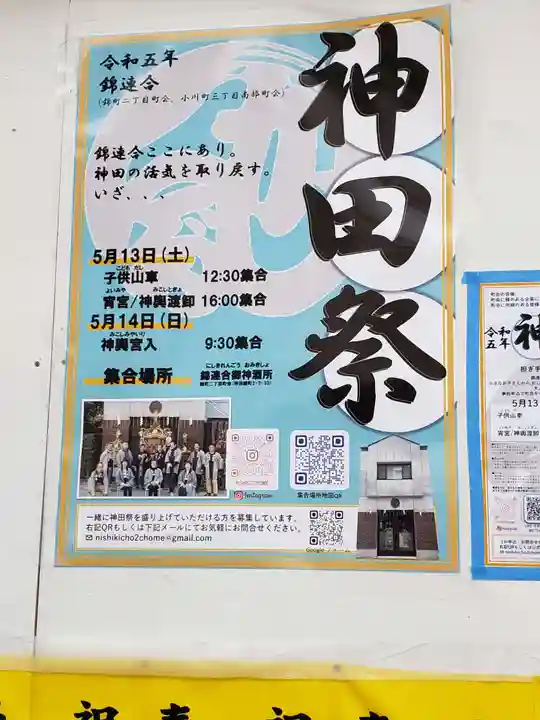 神田祭
令和五年
錦連合
(錦町二丁目町会、小川町三丁目南部町会)
錦連合ここにあり。
神田の活気を取り戻す。
いざ、、、
5月13日(土)
こども だし
子供山車 12:30集合
よいみや みこしとぎょ
宵宮/神輿渡御 16:00集合
5月14日(日)
みこしみやいり
神輿宮入 9:30集合
集合場所
にしきれんごう おみきしょ
錦連合御神酒所
Instagram
集合場所地図QR
一緒に神田祭を盛り上げていただける方を募集しています。
右記QRもしくは下記メールにてお気軽にお問合せください。
✉ nishikicho2chome@gmail.com
Google フォーム
令和
五年
神
5月13
子供山車
宵宮/神輿渡
Instagram